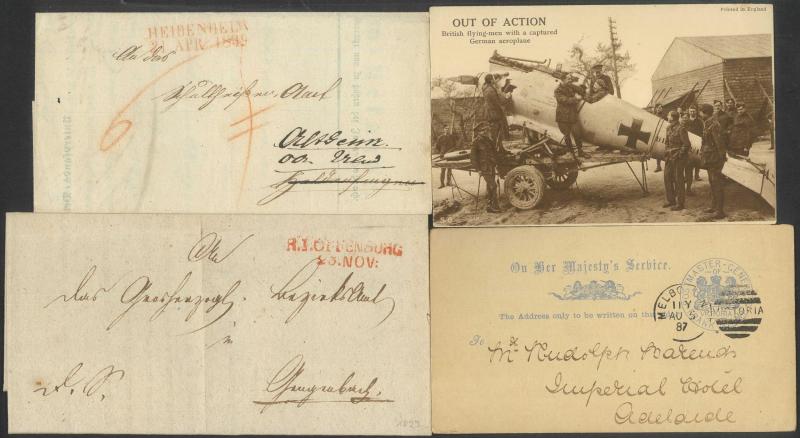 HEIDENHEIM
APR 1849
An das
Schultheißen Amt
6
Altheim
OUT OF ACTION
British flying-men with a captured
German aeroplane
Printed in England
An
R.I.OFFENBURG
23.NOV:
Das Grosherzogl. Bezirks Amt
in
D. S.
Gengenbach.
On Her Majesty's Service.
The Address only to be written on this
MELBO
AU 5
87
VICTORIA
To
Mr Rudolph Barends
Imperial Hotel
Adelaide